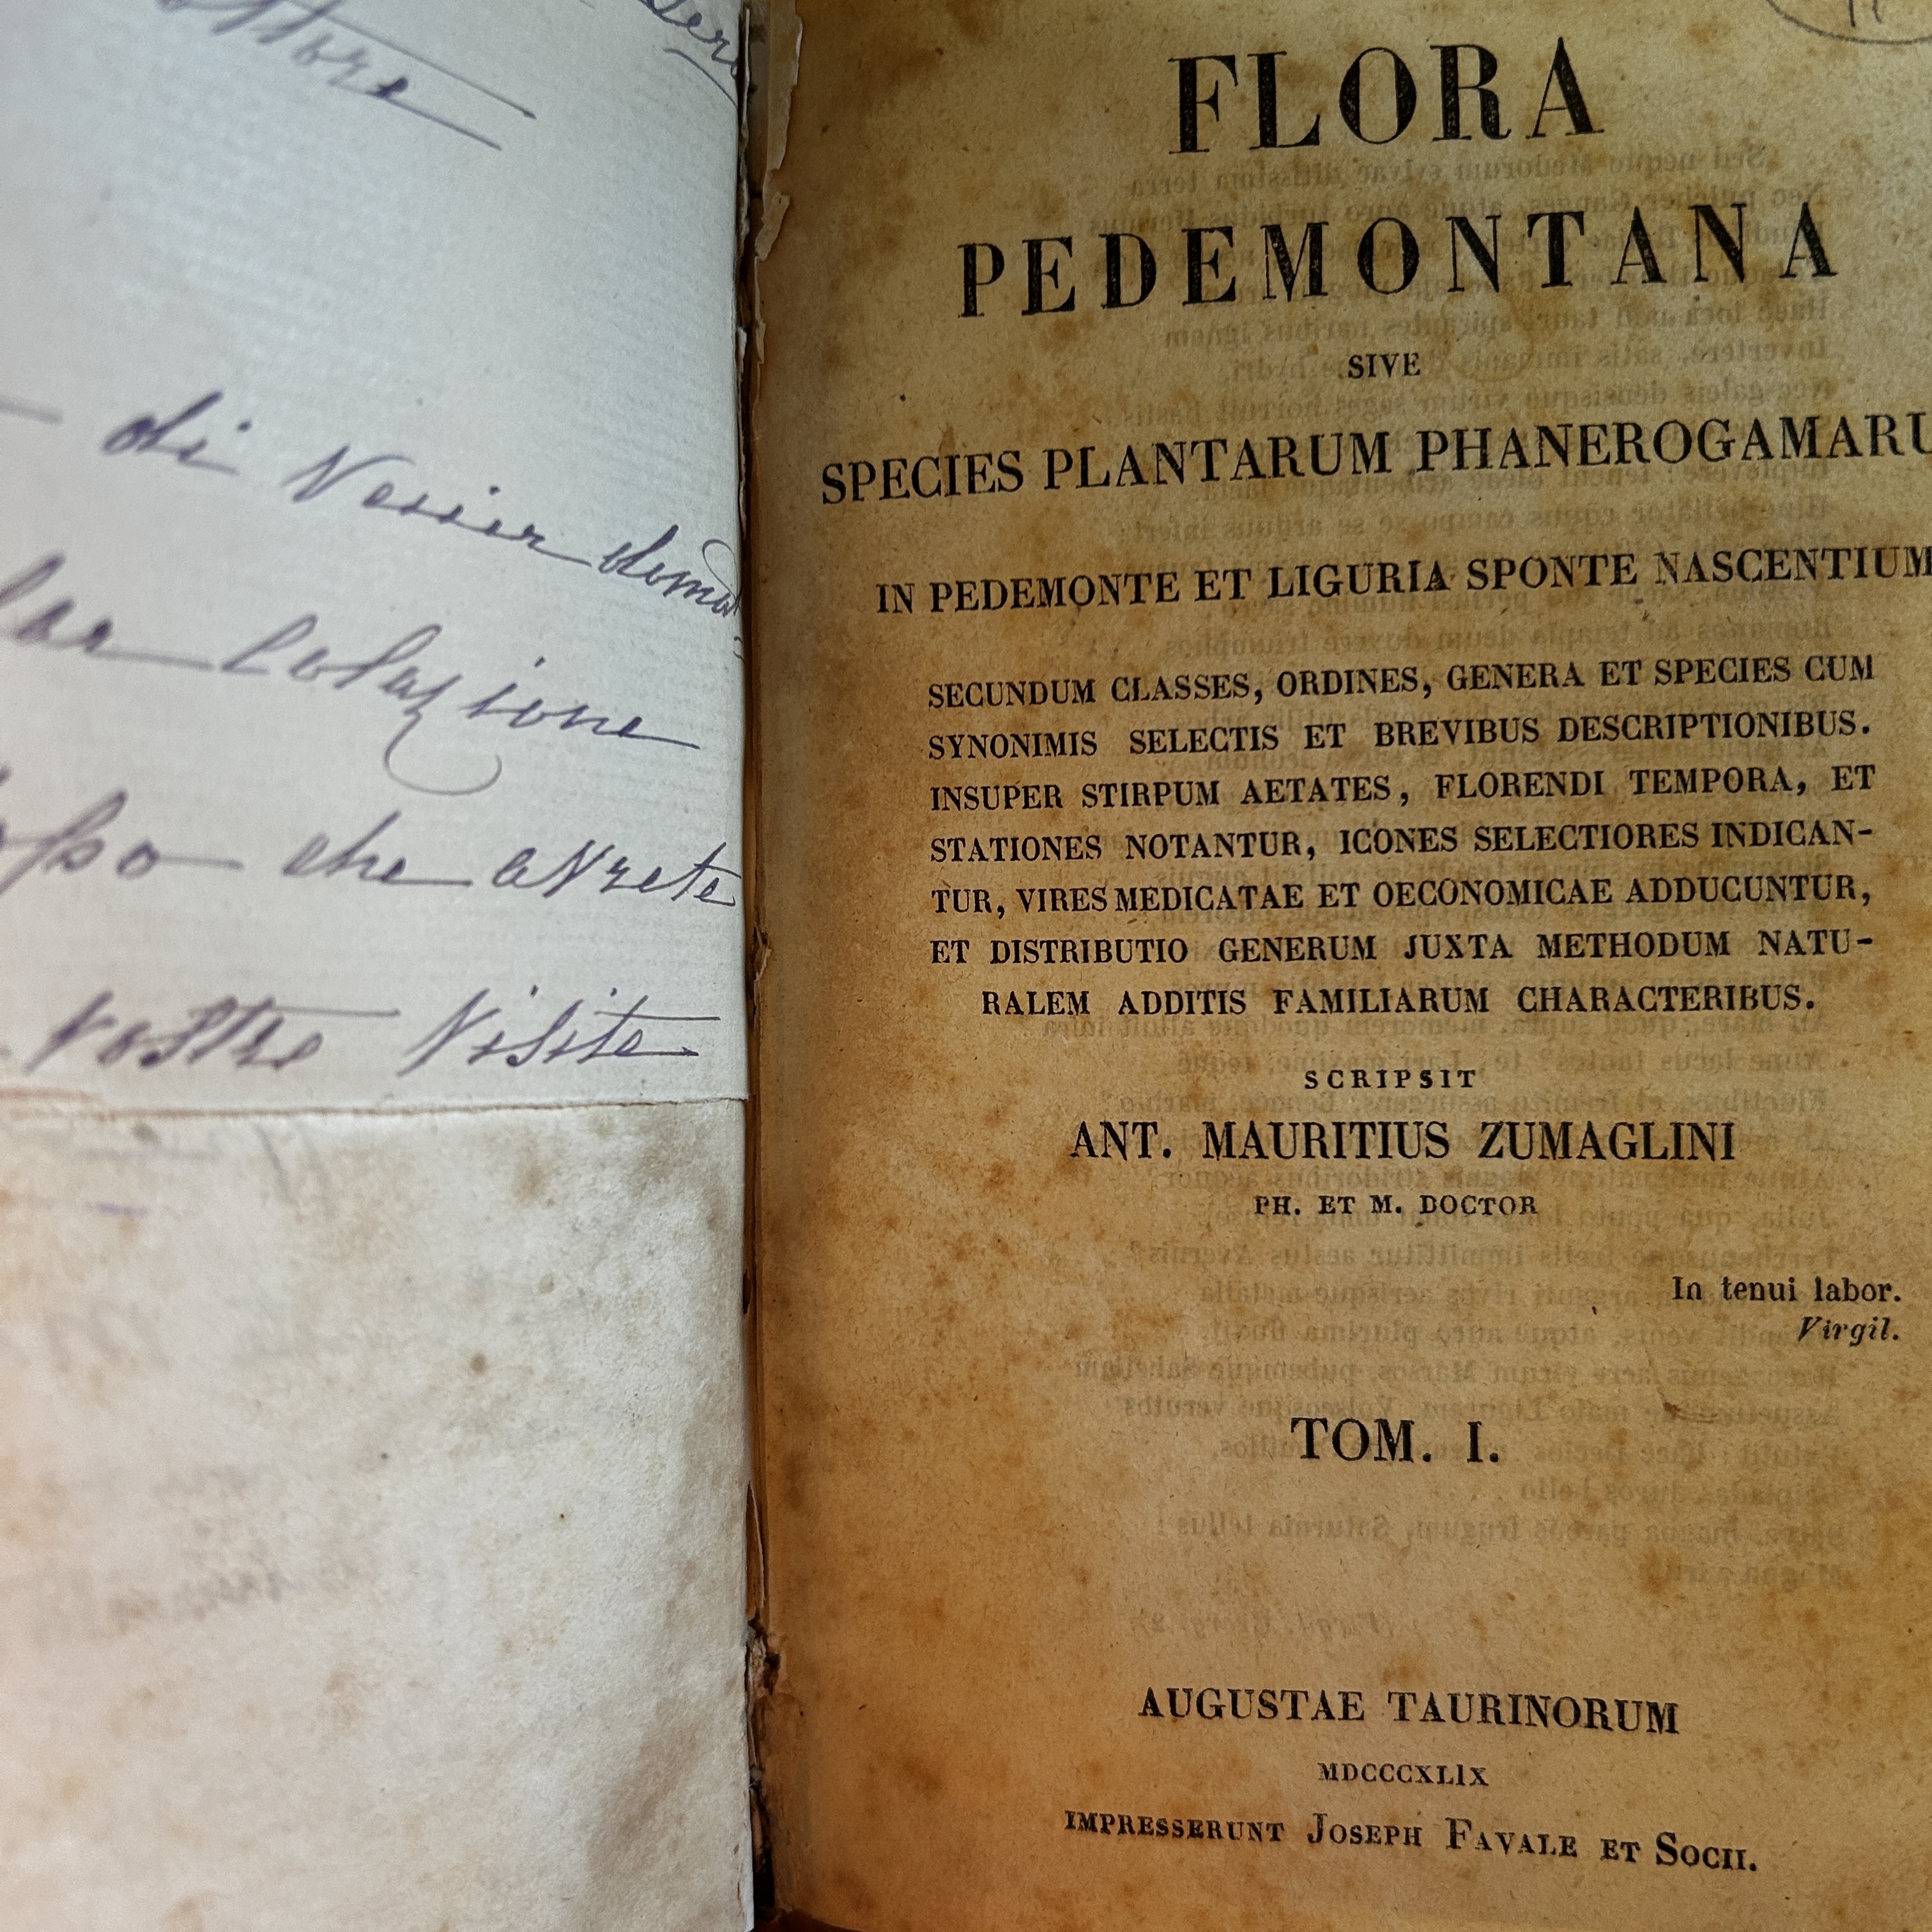 di Venir doma
colazione
che avrete
vostre visite
FLORA
PEDEMONTANA
SIVE
SPECIES PLANTARUM PHANEROGAMARU
IN PEDEMONTE ET LIGURIA SPONTE NASCENTIUM
SECUNDUM CLASSES, ORDINES, GENERA ET SPECIES CUM
SYNONIMIS SELECTIS ET BREVIBUS DESCRIPTIONIBUS.
INSUPER STIRPUM AETATES, FLORENDI TEMPORA, ET
STATIONES NOTANTUR, ICONES SELECTIORES INDICAN-
TUR, VIRES MEDICATAE ET OECONOMICAE ADDUCUNTUR,
ET DISTRIBUTIO GENERUM JUXTA METHODUM NATU-
RALEM ADDITIS FAMILIARUM CHARACTERIBUS.
SCRIPSIT
ANT. MAURITIUS ZUMAGLINI
PH. ET M. DOCTOR
In tenui labor.
Virgil.
TOM. I.
AUGUSTAE TAURINORUM
MDCCCXLIX
IMPRESSERUNT JOSEPH FAVALE ET SOCII.